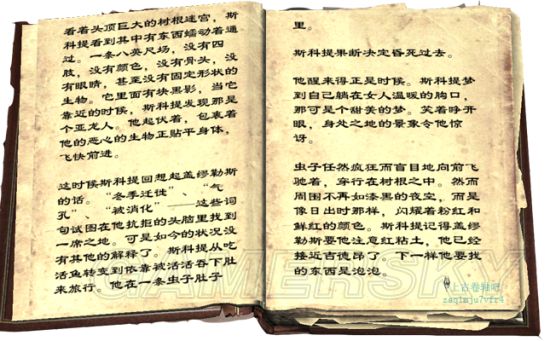 看着头顶巨大的树根迷宫，斯
科提看到其中有东西蠕动着通
过。一条八英尺场，没有四
肢，没有颜色，没有骨头，没
有眼睛，甚至没有固定形状的
生物。它里面有块黑影，当它
靠近的时候，斯科提发现那是
个亚龙人。他起伏着，包裹着
他的恶心的生物正贴平身体，
飞快前进。
这时候斯科提回想起盖缪勒斯
的话。“冬季迁徙”、“气
孔”、“被消化”——这些词
句试图在他抗拒的头脑里找到
一席之地。可是如今的状况没
有其他的解释了。斯科提从吃
活鱼转变到依靠被活活吞下肚
来旅行。他在一条虫子肚子
里。
斯科提果断决定昏死过去。
他醒来得正是时候。斯科提梦
到自己躺在女人温暖的胸口，
那可是个甜美的梦。笑着睁开
眼，身处之地的景象令他惊
讶。
虫子任然疯狂而盲目地向前飞
驰着，穿行在树根之中。然而
周围不再如漆黑的夜空，而是
像日出时那样，闪耀着粉红和
鲜红的颜色。斯科提记得盖缪
勒斯要他注意红粘土，他已经
接近吉德昂了。下一样他要找
的东西是泡泡。
GAMERSKY
上古卷轴吧
zaq1mju7vfr4